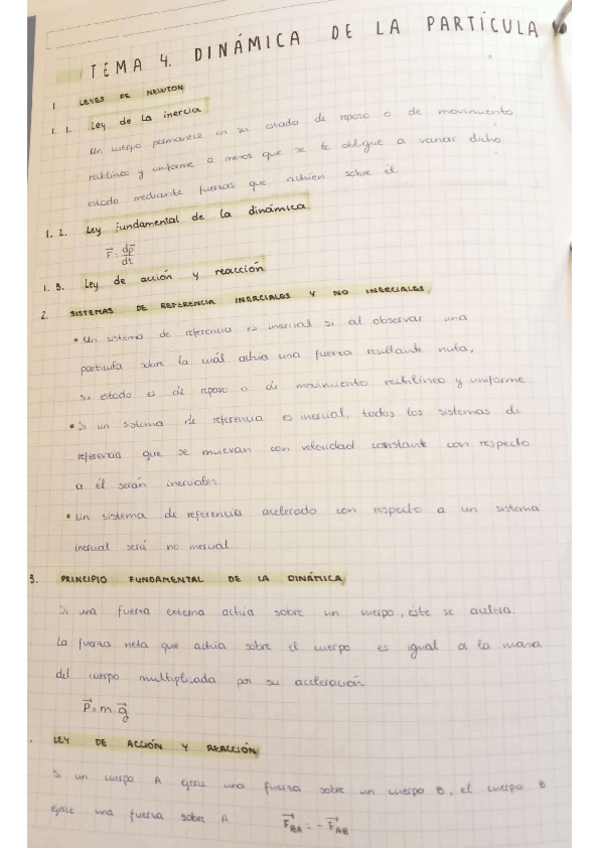 TEMA 4. DINÁMICA DE LA PARTÍCULA
1. LEYES DE NEWTON
1. 1. Ley de la inercia
Un cuerpo permanece en su estado de reposo o de movimiento
rectilíneo y uniforme a menos que se le obligue a variar dicho
estado mediante fuerzas que actúen sobre él.
1. 2. Ley fundamental de la dinámica
F⃗ = dp⃗/dt
1. 3. Ley de acción y reacción
2. SISTEMAS DE REFERENCIA INERCIALES Y NO INERCIALES
• Un sistema de referencia es inercial si al observar una
partícula sobre la cuál actúa una fuerza resultante nula,
su estado es de reposo o de movimiento rectilíneo y uniforme.
• Si un sistema de referencia es inercial, todos los sistemas de
referencia que se muevan con velocidad constante con respecto
a él serán inerciales.
• Un sistema de referencia acelerado con respecto a un sistema
inercial será no inercial.
3. PRINCIPIO FUNDAMENTAL DE LA DINÁMICA
Si una fuerza externa actúa sobre un cuerpo, éste se acelera.
La fuerza neta que actúa sobre el cuerpo es igual a la masa
del cuerpo multiplicada por su aceleración.
P⃗ = m · g⃗
LEY DE ACCIÓN Y REACCIÓN
Si un cuerpo A ejerce una fuerza sobre un cuerpo B, el cuerpo B
ejerce una fuerza sobre A F⃗BA = - F⃗AB